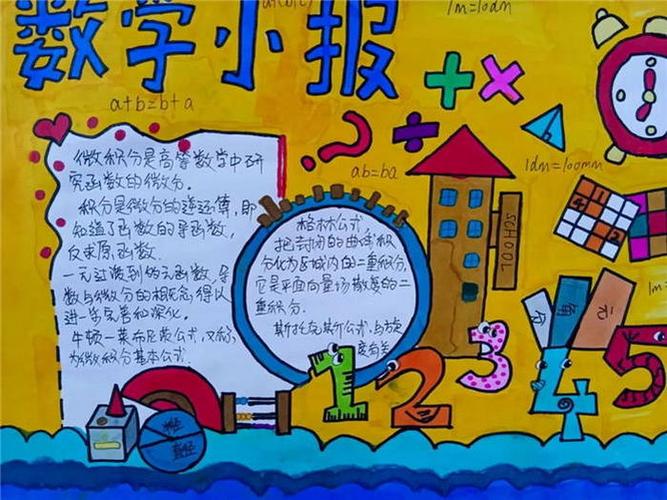 数学小报
1m=10dm
a+b=b+a
微积分是高等数学中研
究函数的微分.
积分是微分的逆运算,即
知道了函数的导函数,
反求原函数.
一元过渡到多元函数,导
数与微分的相概念得以
进一步完善和深化.
牛顿一莱布尼茨公式,又称
为微积分基本公式.
ab=ba
格林公式
把封闭的曲线积
分化为区域内的二重积分,
它是平面向量场散度的二
重积分.
斯托克斯公式:与旋
度有关
SCHOOL
1dm=100mm
1m=
元
直径
1
2
3
4
5